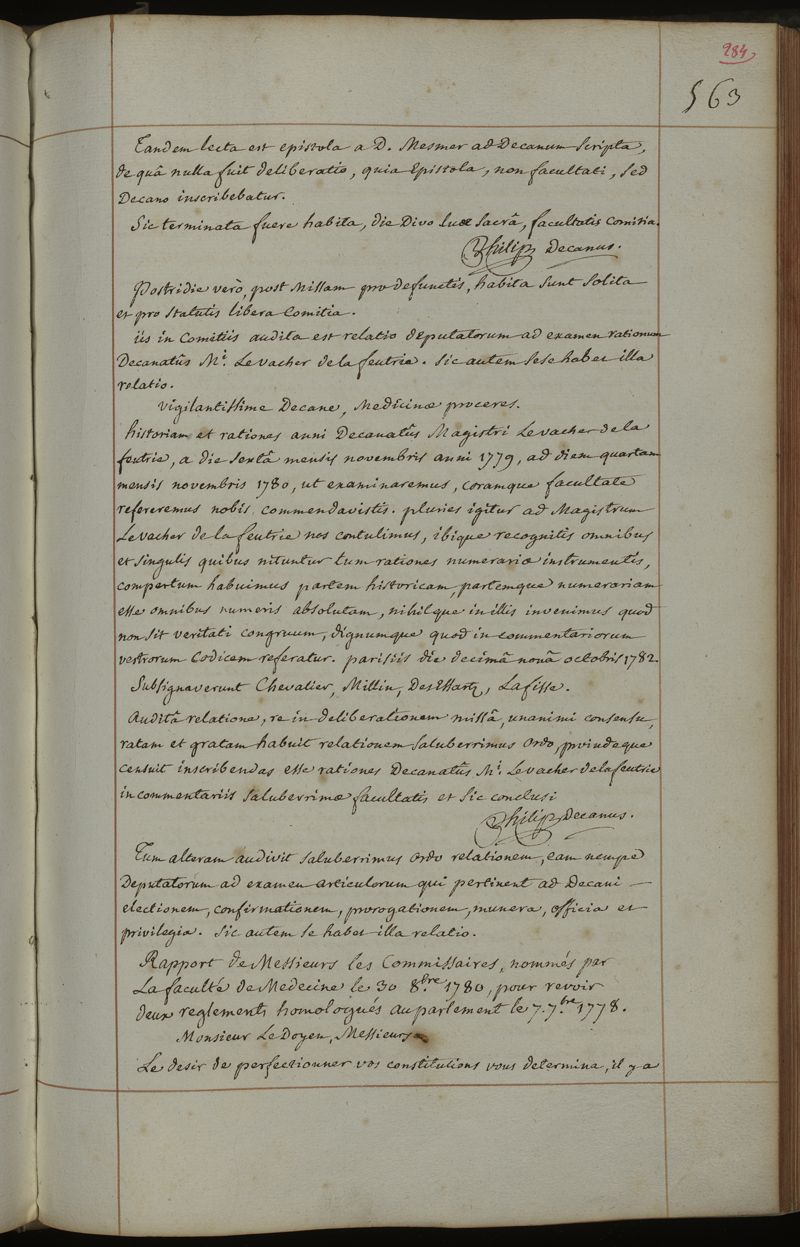 284
563
Tandem lecta est epistola a D. Mesmer ad Decanum scripta,
de quâ nulla fuit deliberatio, quia Epistola, non facultati, sed
Decano inscribebatur.
Sic terminata fuere habita, die Divo lucæ Sacrâ, facultatis Comitia.
Philip Decanus.
Postridie verò, post Missam pro defunctis, habita sunt solita
et pro statutis libera Comitia.
iis in Comitiis audita est relatio deputatorum ad examen rationum
Decanatûs Mi. Le vacher de la feutrie. Sic autem sese habet illa
relatio.
vigilantissime Decane, Medicinæ proceres.
historiam et rationes anni Decanatûs Magistri Le vacher de la
feutrie, a die sextâ mensis novembris anni 1779, ad diem quartam
mensis novembris 1780, ut examinaremus, coramque facultate
referremus nobis commendavistis. pluries igitur ad Magistrum
Le vacher de la feutrie nos contulimus, ibique recognitis omnibus
et singulis quibus nituntur tum rationes numerariæ instrumentis,
compertum habuimus partem historicam, partemque numerariam
esse omnibus numeris absolutam, nihilque in illis invenimus quod
non sit veritati congruum, dignumque quod in commentariorum
vestrorum Codicem referatur. parisiis die decimâ nonâ octobris 1782.
Subsignaverunt Chevalier, Millin, Des Essartz, Lafisse.
Auditâ relatione, re in deliberationem missâ, unanimi consensu,
ratam et gratam habuit relationem saluberrimus ordo, proindeque
censuit inscribendas esse rationes Decanatûs Mi. Le vacher de la feutrie
in commentariis saluberrimæ facultatis et sic conclusi
Philip Decanus.
Tum alteram audivit saluberrimus ordo relationem, eam nempe
Deputatorum ad examen articulorum qui pertinent ad Decani —
electionem, confirmationem, prorogationem, munera, officia et
privilegia. Sic autem se habet illa relatio.
Rapport de Messieurs les Commissaires, nommés par
La faculté de Medecine le 30 8.bre 1780, pour revoir
deux reglements homologués au parlement le 7. 7.bre 1778.
Monsieur Le Doyen, Messieurs
Le desir de perfectionner vos constitutions vous determina, il y a